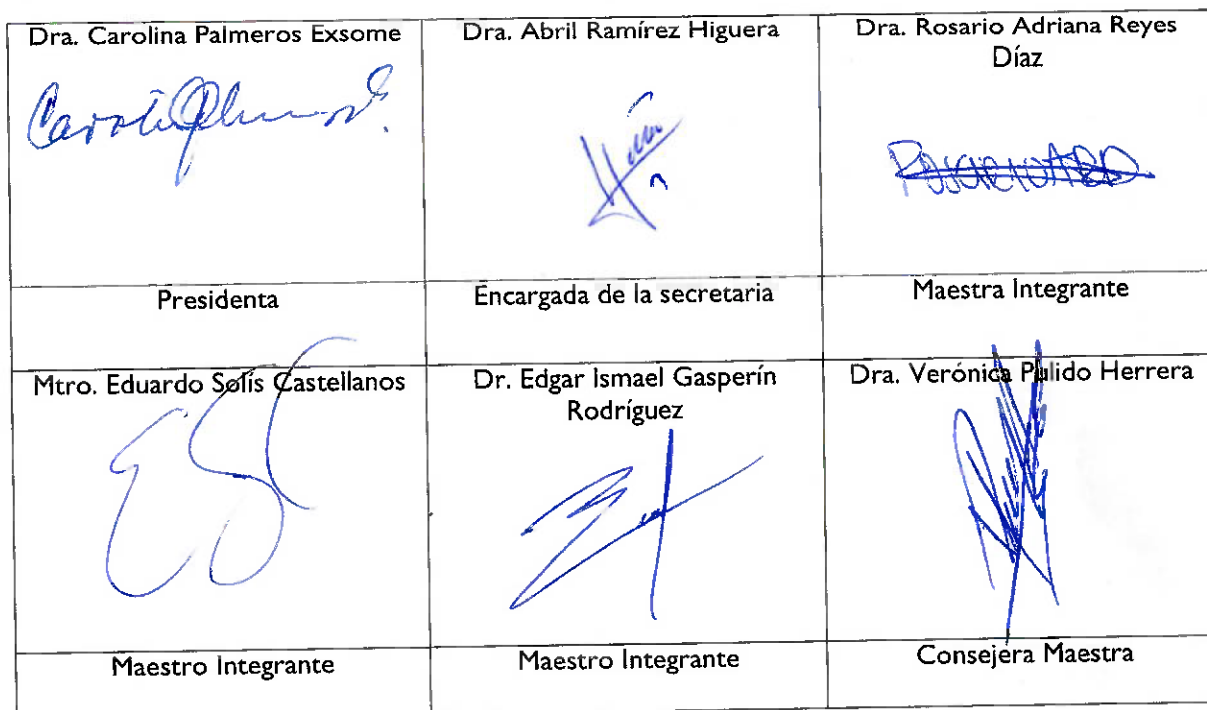 Dra. Carolina Palmeros Exsome
Dra. Abril Ramírez Higuera
Dra. Rosario Adriana Reyes
Díaz
Presidenta
Encargada de la secretaria
Maestra Integrante
Mtro. Eduardo Solís Castellanos
Dr. Edgar Ismael Gasperín
Rodríguez
Dra. Verónica Pulido Herrera
Maestro Integrante
Maestro Integrante
Consejera Maestra